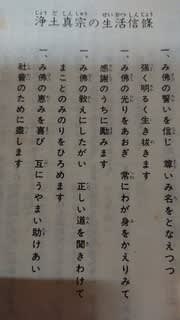 浄土真宗の生活信條
一、み佛の誓いを信じ 尊いみ名をとなえつつ
強く明るく生き抜きます
一、み佛の光りをあおぎ 常にわが身をかえりみて
感謝のうちに励みます
一、み佛の教えにしたがい 正しい道を聞きわけて
まことのみのりをひろめます
一、み佛の恵みを喜び 互にうやまい助けあい
社會のために盡します